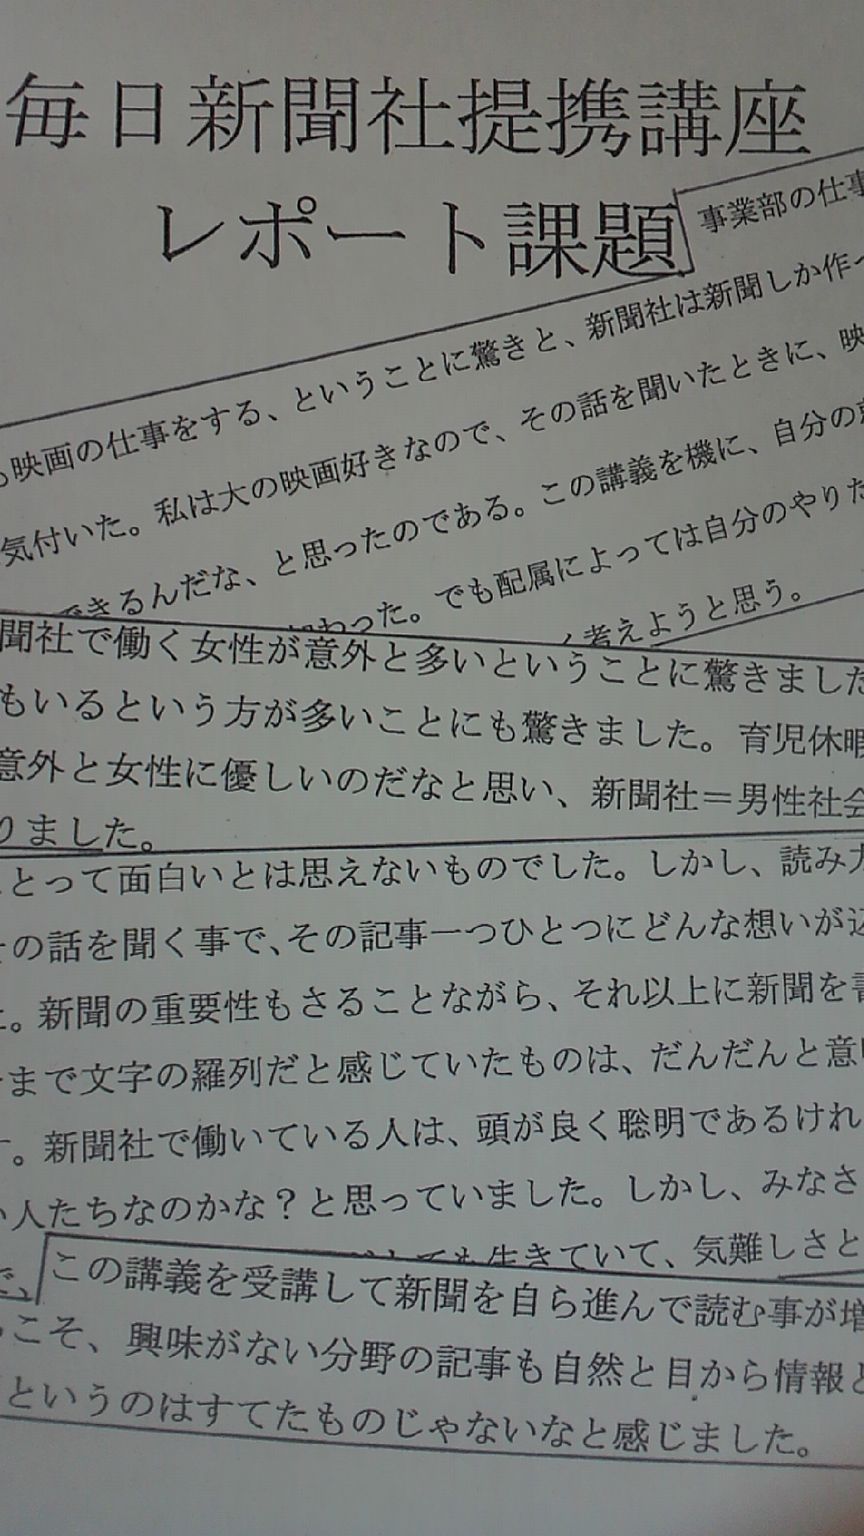 毎日新聞社提携講座
レポート課題
事業部の仕事
映画の仕事をする、ということに驚きと、新聞社は新聞しか作
気付いた。私は大の映画好きなので、その話を聞いたときに、映
できるんだな、と思ったのである。この講義を機に、自分の
わった。でも配属によっては自分のやりた
く考えようと思う。
聞社で働く女性が意外と多いということに驚きました
もいるという方が多いことにも驚きました。育児休暇
意外と女性に優しいのだなと思い、新聞社＝男性社会
りました。
とって面白いとは思えないものでした。しかし、読み
の話を聞く事で、その記事一つひとつにどんな想いが込
。新聞の重要性もさることながら、それ以上に新聞を書
まで文字の羅列だと感じていたものは、だんだんと意味
。新聞社で働いている人は、頭が良く聡明であるけれ
い人たちなのかな？と思っていました。しかし、みなさ
ても生きていて、気難しさと
この講義を受講して新聞を自ら進んで読む事が増
こそ、興味がない分野の記事も自然と目から情報と
というのはすてたものじゃないなと感じました。